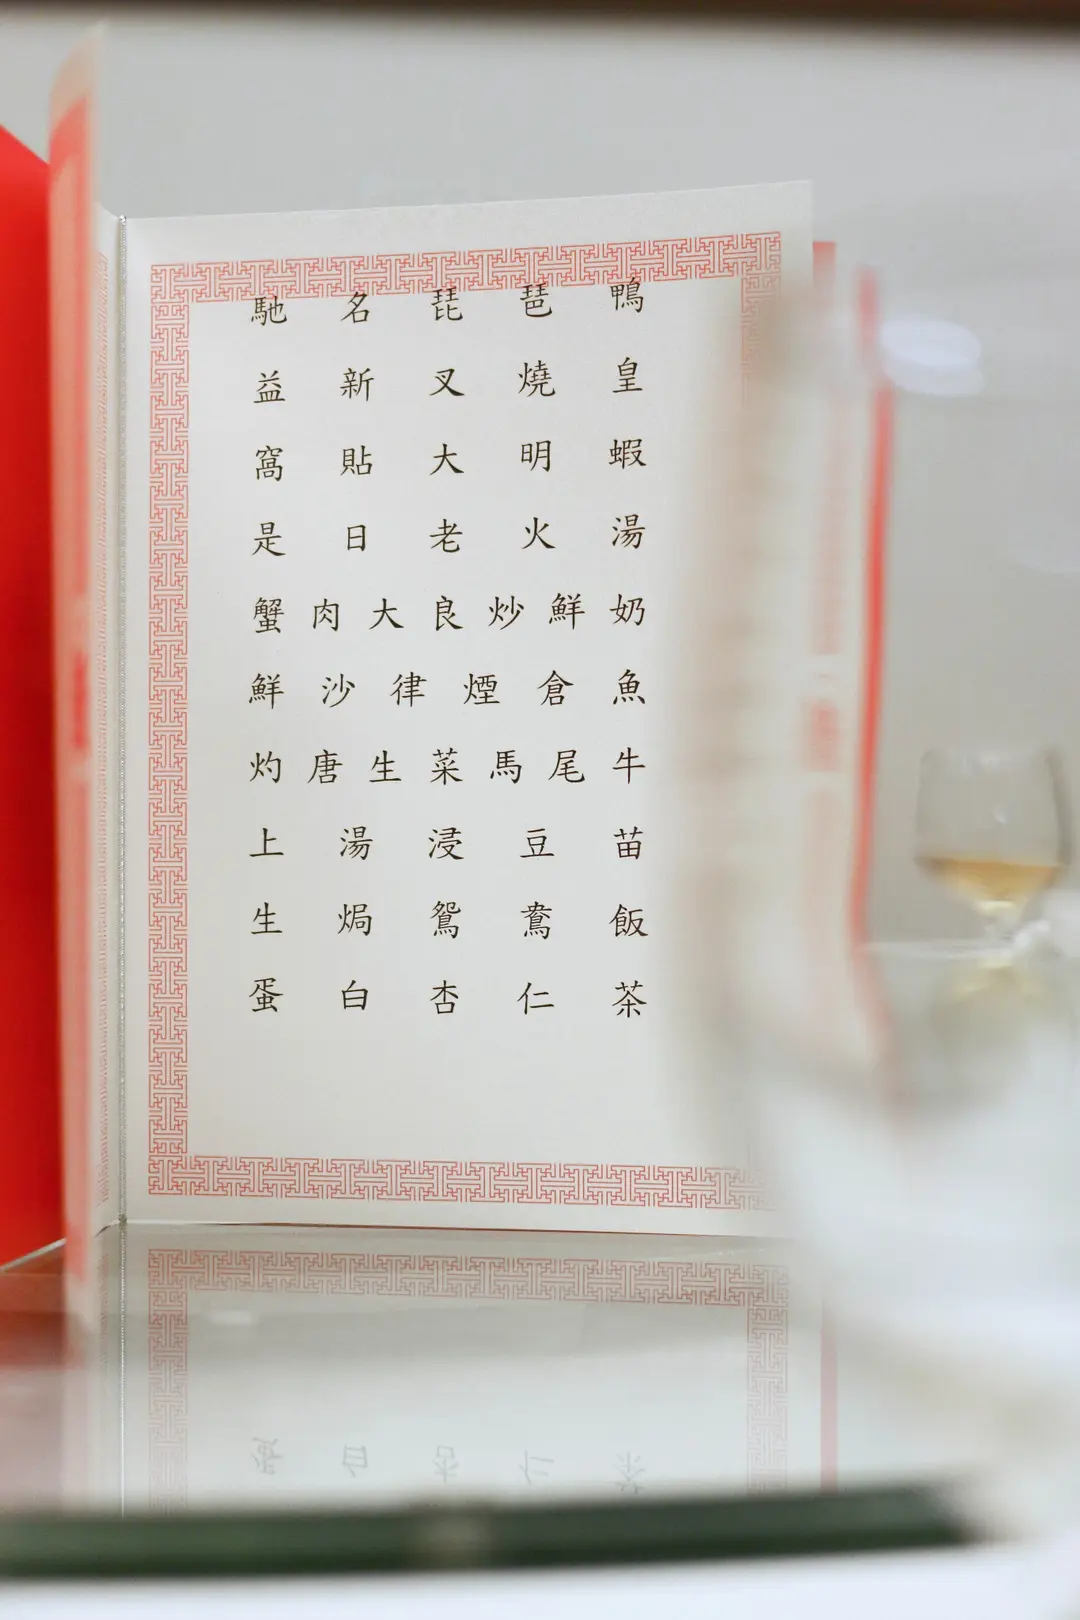 馳名琵琶鴨
益新叉燒皇
窩貼大明蝦
是日老火湯
蟹肉大良炒鮮奶
鮮沙律煙倉魚
灼唐生菜馬尾牛
上湯浸豆苗
生焗鴛鴦飯
蛋白杏仁茶